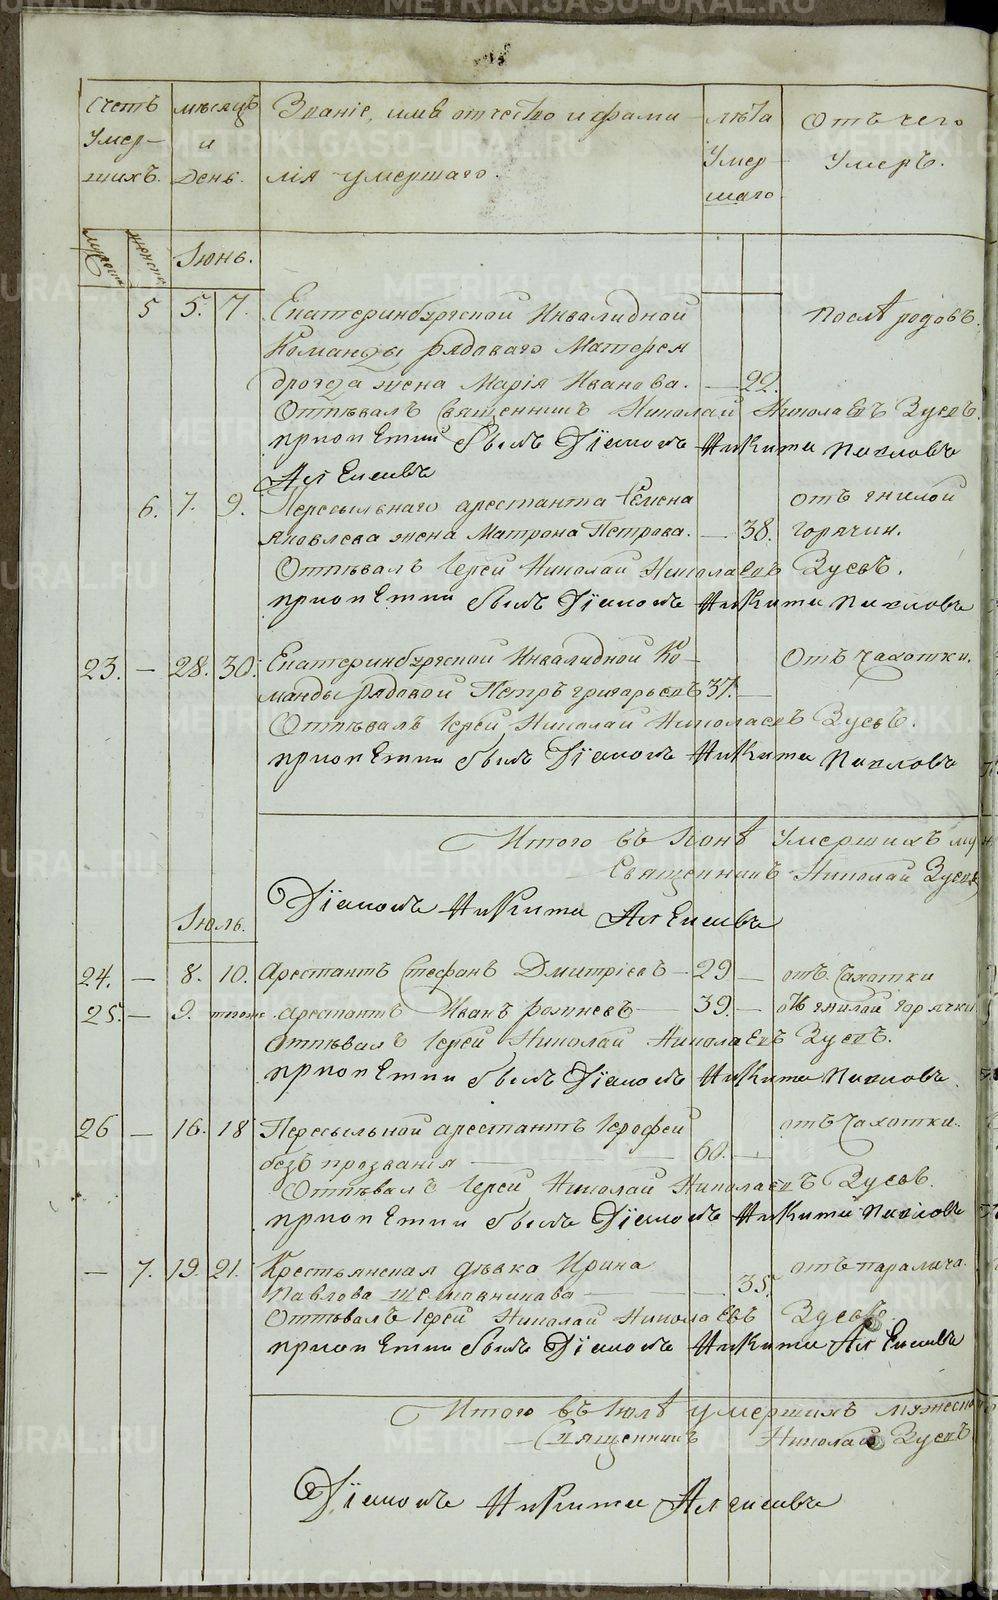 Счетъ умер- шихъ.
мѣсяцъ и день.
Званіе, имя отчество и фами-
лія умершаго.
лѣта умер шаго
Отъ чего умеръ.
мужеска
женска
Іюнь.
5 5. 7. Екатеринбургской Инвалидной послѣ родовъ.
Команды рядоваго Матфея
Дрозда жена Марія Иванова. — 22.
Отпѣвалъ Священникъ Николай Николаевъ Зуевъ.
при отпѣтии былъ Діаконъ Никита Павловъ
Алексиевъ
6. 7. 9. Пересыльнаго арестанта Семена отъ гнилой
Яковлева жена Матрона Петрова. — 38. горячки.
Отпѣвалъ Іерей Николай Николаевъ Зуевъ.
при отпѣтии былъ Діаконъ Никита Павловъ
23. — 28. 30. Екатеринбургской Инвалидной Ко- Отъ чахотки.
манды рядовой Петръ Григорьевъ 37. —
Отпѣвалъ Іерей Николай Николаевъ Зуевъ.
при отпѣтии былъ Діаконъ Никита Павловъ
Итого въ Іюнѣ умершихъ му
Священникъ Николай Зуевъ
Діаконъ Никита Алексиевъ
Іюль.
24. — 8. 10. Арестантъ Стефанъ Дмитріевъ — 29 — отъ чахотки
25. — 9. тогоже арестантъ Иванъ — 39. — отъ гнилой горячки
Отпѣвалъ Іерей Николай Николаевъ Зуевъ.
при отпѣтии былъ Діаконъ Никита Павловъ.
26 — 16. 18 Пересыльной арестантъ Іерофей отъ чахотки.
безъ прозванія — 60. —
Отпѣвалъ Іерей Николай Николаевъ Зуевъ.
при отпѣтии былъ Діаконъ Никита Павловъ
— 7. 19. 21. Крестьянская дѣвка Ирина отъ паралича.
Павлова — 35.
Отпѣвалъ Іерей Николай Николаевъ Зуевъ.
при отпѣтии былъ Діаконъ Никита Алексиевъ
Итого въ Іюлѣ умершихъ мужеска
Священникъ Николай Зуевъ
Діаконъ Никита Алексиевъ
METRIKI.GASO-URAL.RU